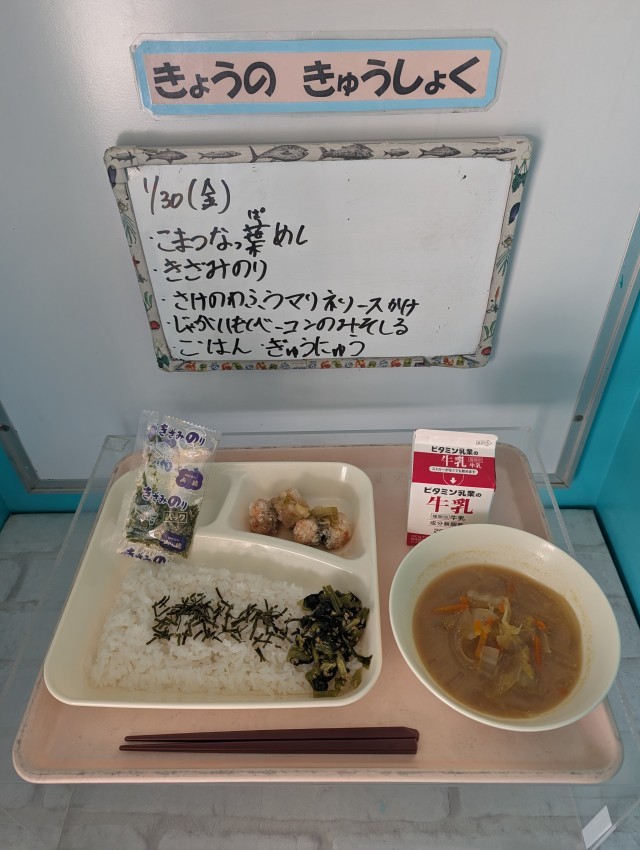 きょうの きゅうしょく
1/30(金)
・こまつなっ葉めし
ぱ
・きざみのり
・さけのわふうマリネソースがけ
・じゃがいもとベーコンのみそしる
・ごはん・ぎゅうにゅう
きざみのり
きざみのり
ビタミン乳業の
牛乳
牛乳
ビタミン乳業の
牛乳
種類別 牛乳
成分無調整